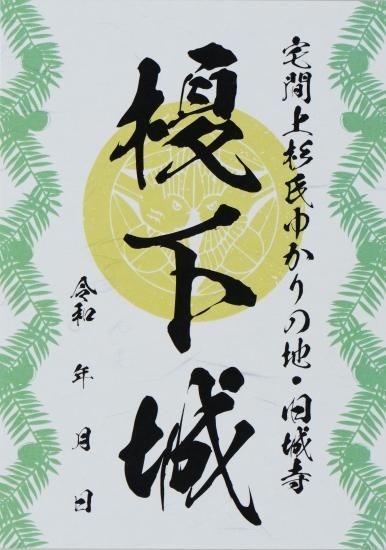 宅間上杉氏ゆかりの地・旧城寺
榎下城
令和 年 月 日